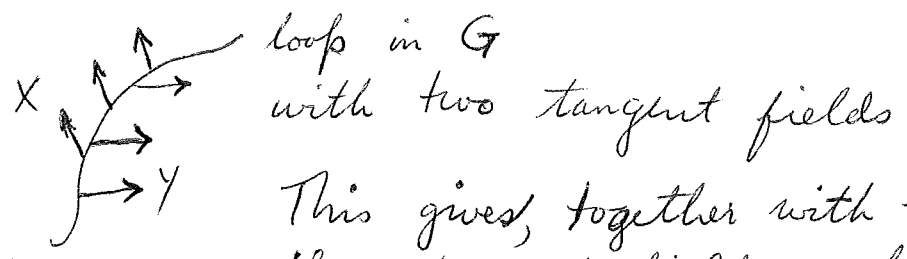 loop in G
X with two tangent fields
Y This gives, together with